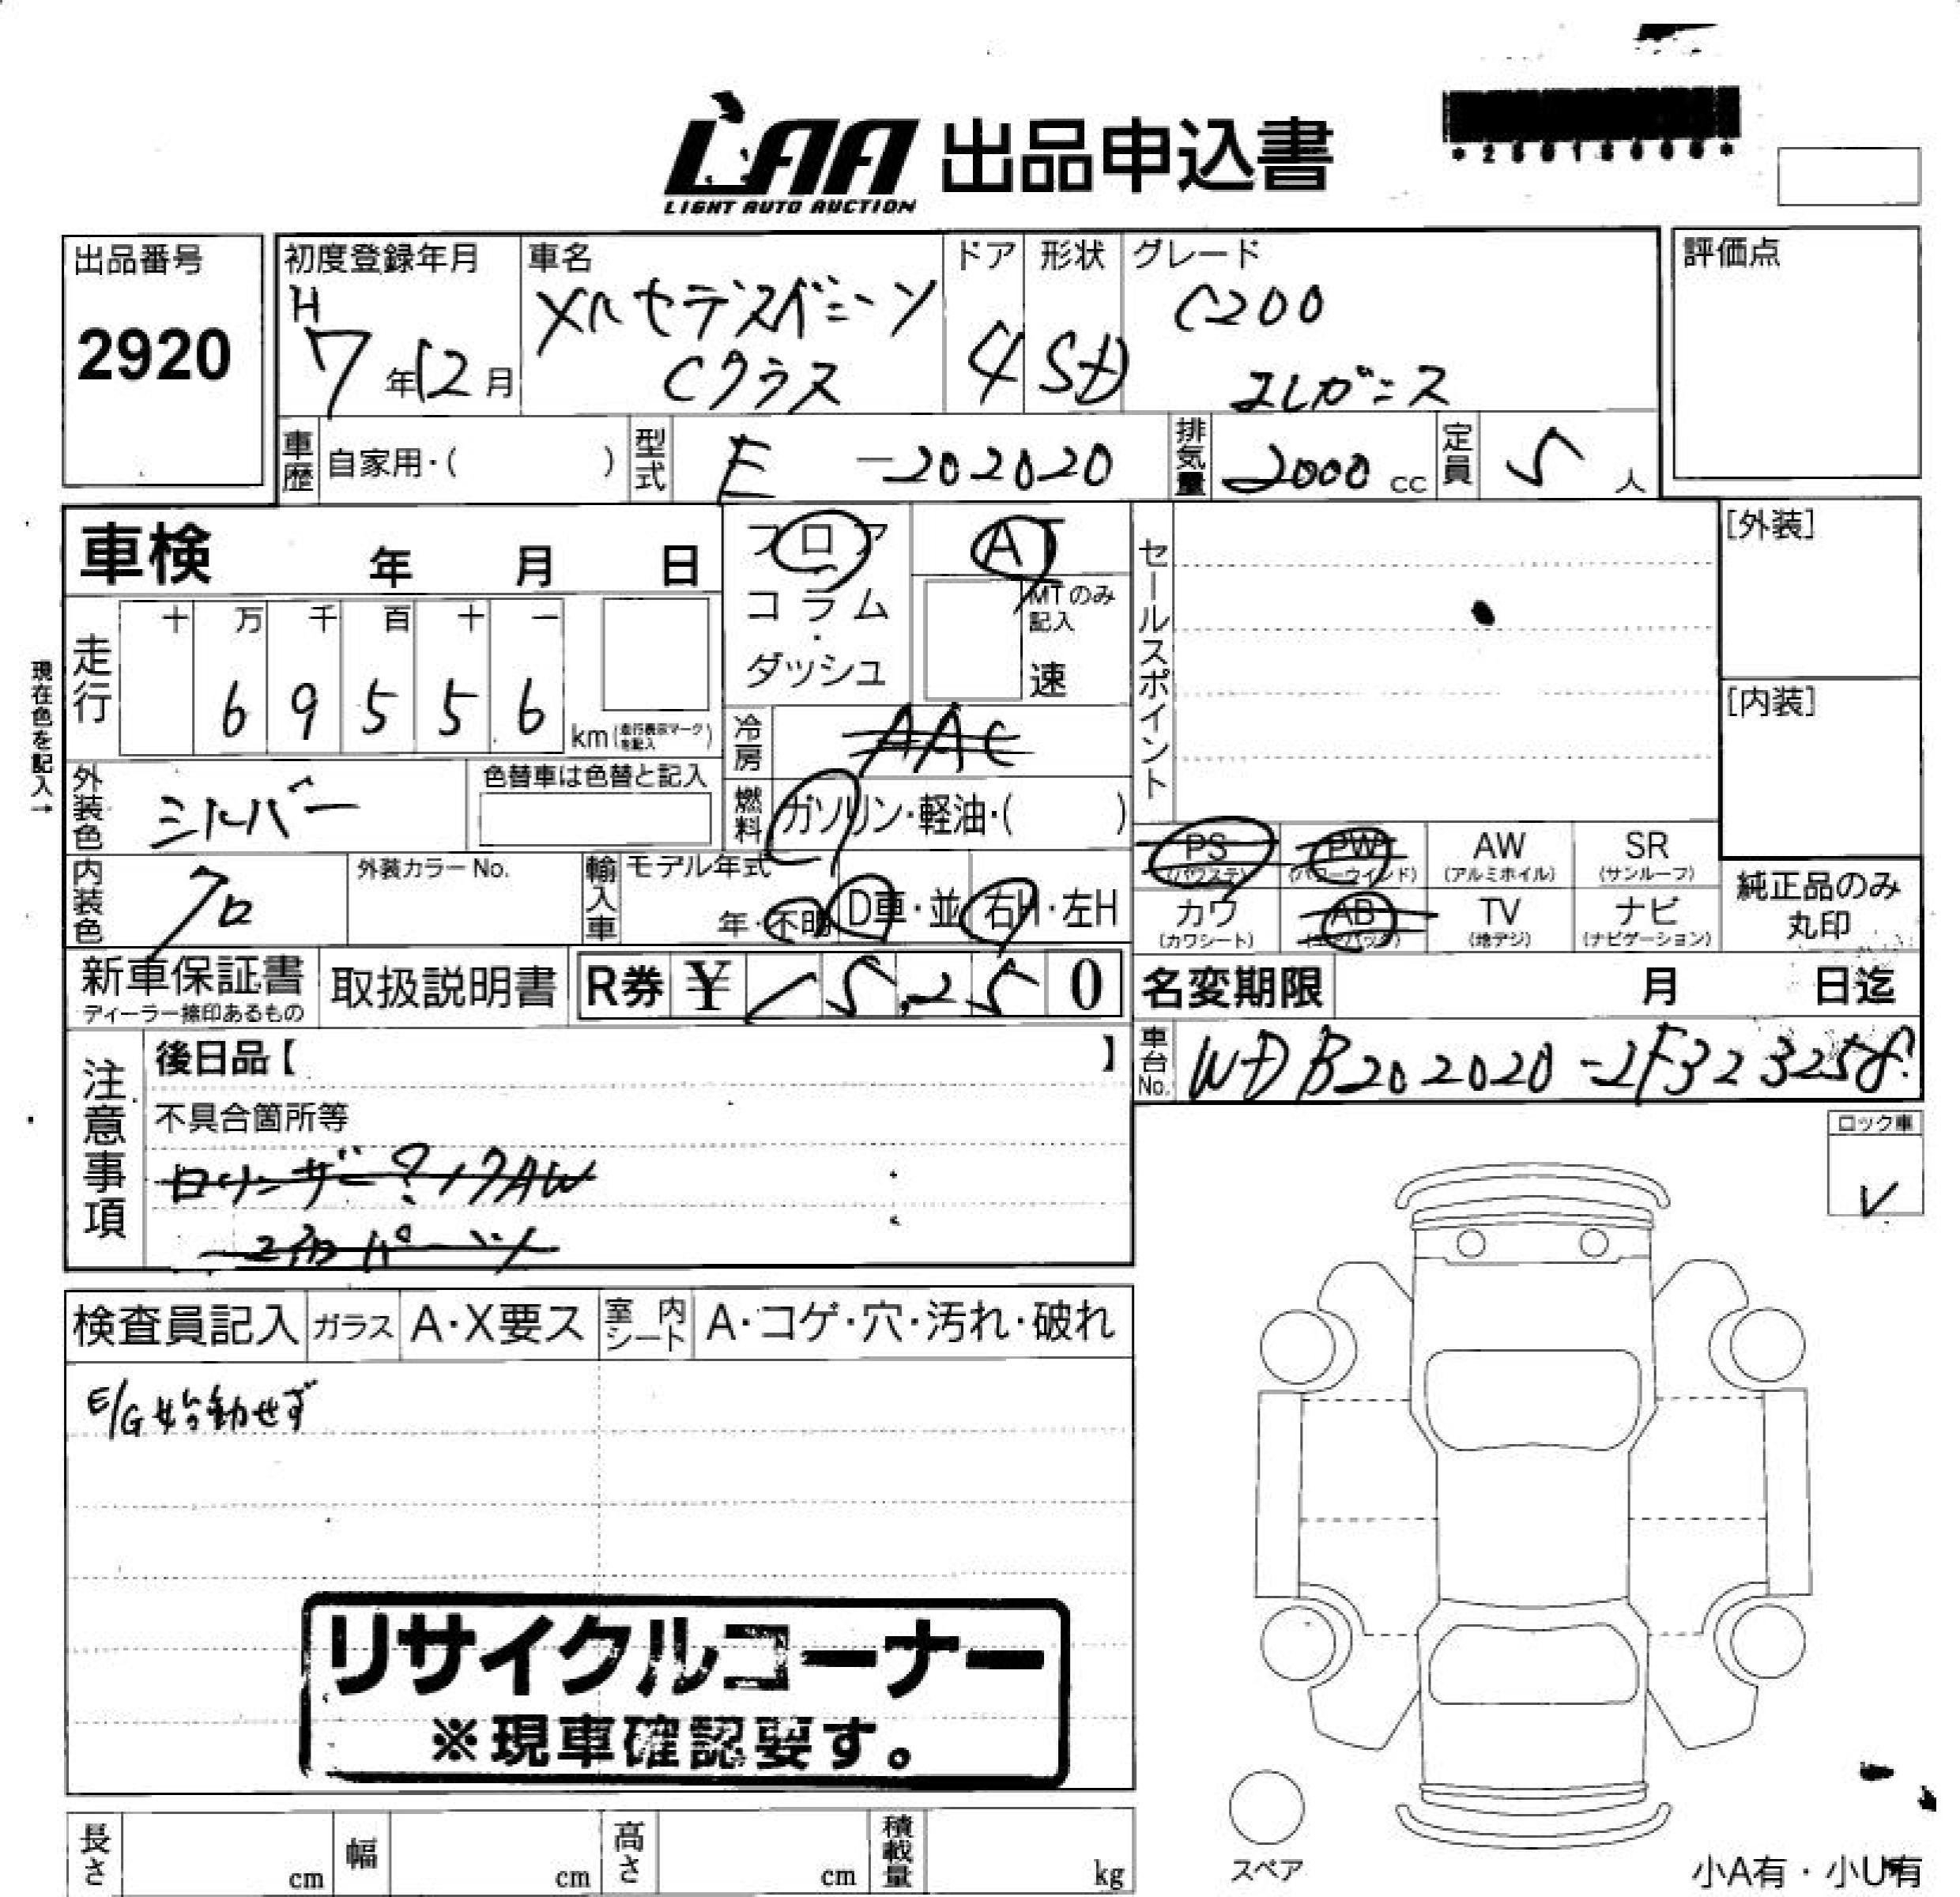 LAA 出品申込書
LIGHT AUTO AUCTION
出品番号
2920
初度登録年月
H
7年12月
車名
メルセデスベンツ
Cクラス
ドア
4
形状
SD
グレード
C200
エレガンス
評価点
車歴 自家用・( )
型式 E -202020
排気量 2000 cc
定員 5 人
車検 年 月 日
フロア
コラム
・
ダッシュ
AT
MTのみ
記入
速
セールスポイント
[外装]
[内装]
現在色を記入→
走行 十 万 千 百 十 一
6 9 5 5 6
km (走行表示マークを記入)
冷房 AAC
燃料 ガソリン・軽油・( )
外装色 シルバー
色替車は色替と記入
内装色 クロ
外装カラーNo.
輸入車 モデル年式
年・不明
D車・並
右H・左H
PS (パワステ)
PW (パワーウインド)
AW (アルミホイル)
SR (サンルーフ)
カワ (カワシート)
AB (エアバッグ)
TV (地デジ)
ナビ (ナビゲーション)
純正品のみ
丸印
新車保証書
ディーラー捺印あるもの
取扱説明書
R券 ¥ 15,250
名変期限 月 日迄
車台No. WDB202020-2F323258
注意事項
後日品【 】
不具合箇所等
パーツ
ロック車
検査員記入 ガラス A・X要ス 室内シート A・コゲ・穴・汚れ・破れ
E/G始動せず
リサイクルコーナー
※現車確認要す。
長さ cm
幅 cm
高さ cm
積載量 kg
スペア
小A有・小U有